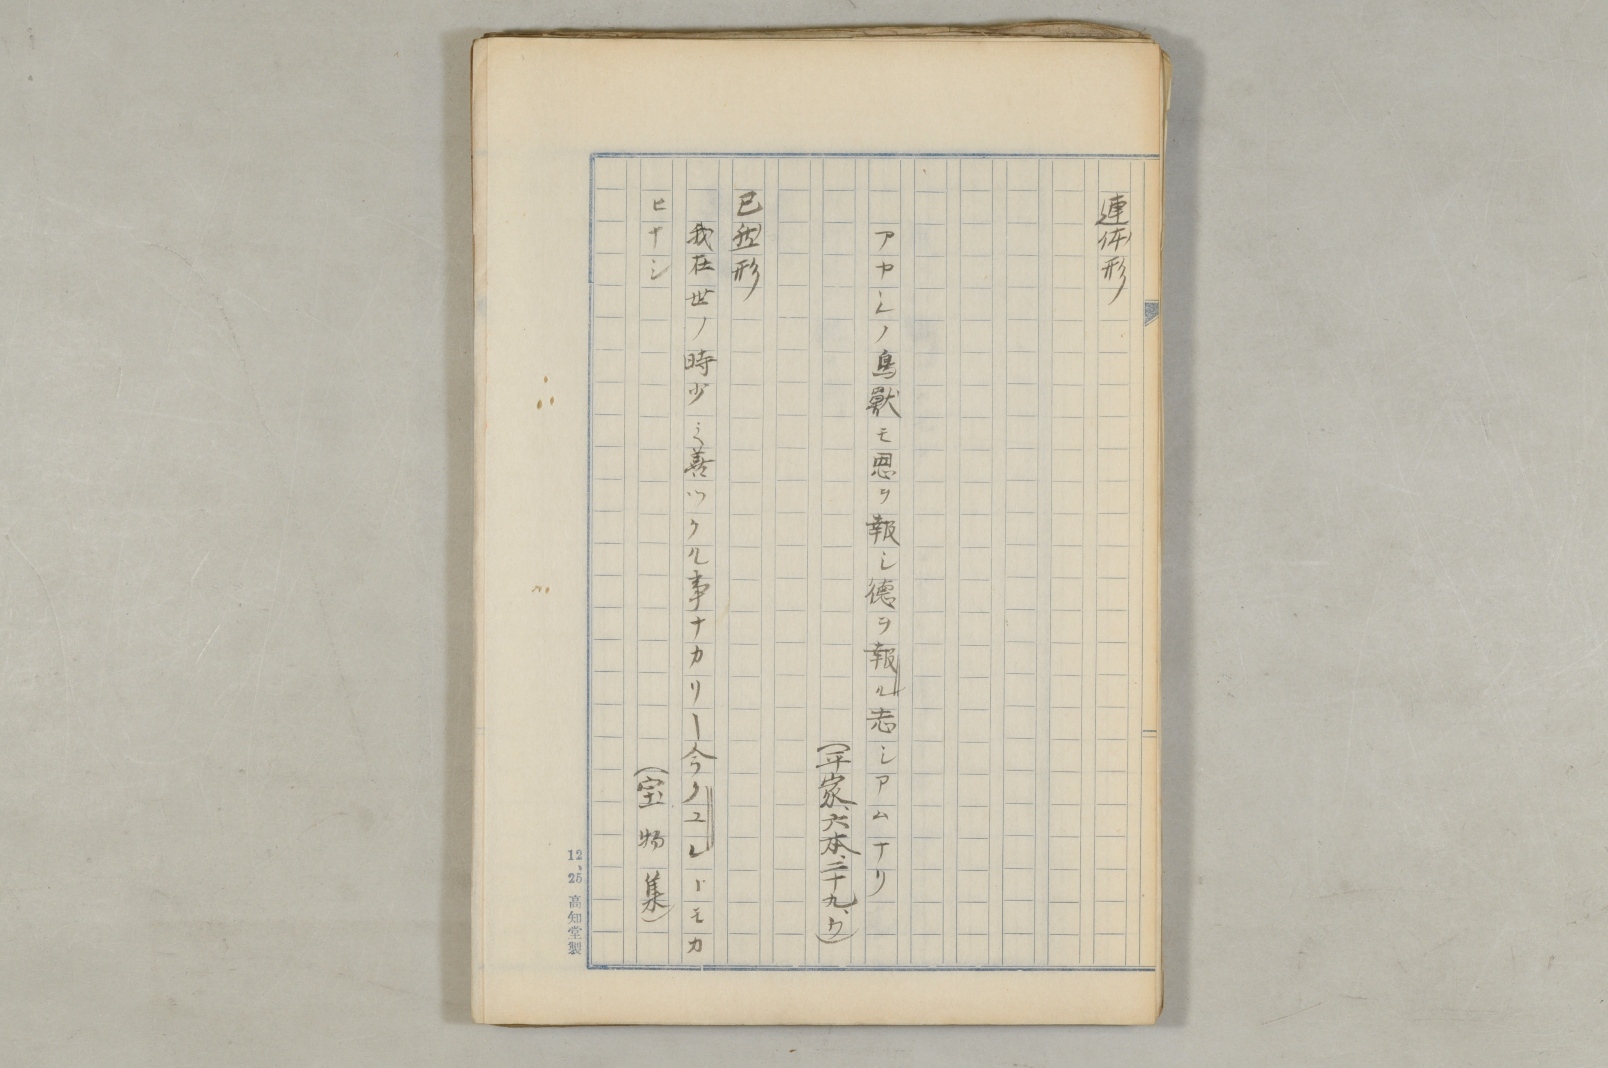 連体形
アヤシノ鳥獣モ恩ヲ報シ徳ヲ報ル志シアムナリ
(平家、六本、二十九、ウ)
已然形
我在世ノ時少シ善ツクル事ナカリー今クユレドモカ
ヒナシ
(宝物集)
12,25 高知堂製